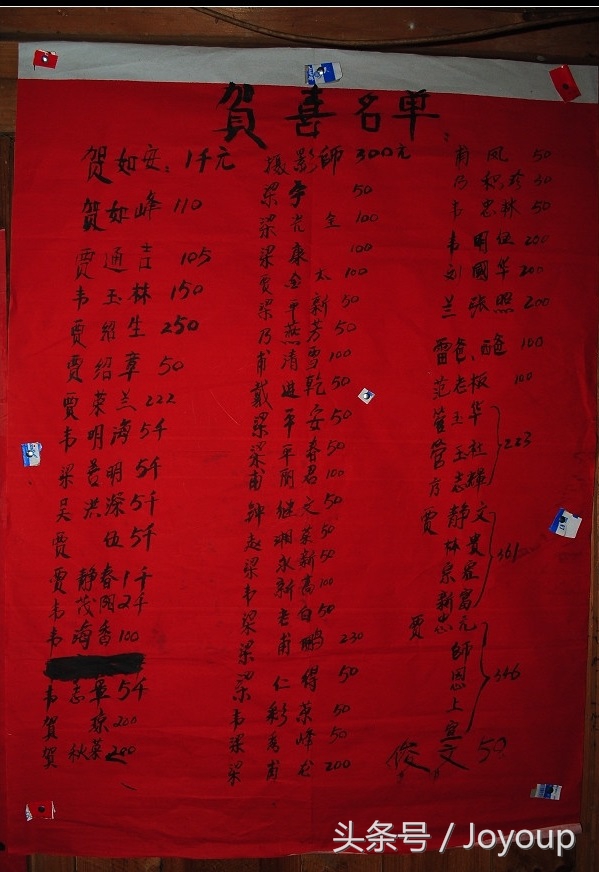 贺喜名单
贺如安：1千元
贺如峰 110
贾通吉 105
韦玉林 150
贾绍生 250
贾绍章 50
贾荣兰 222
韦明涛 5千
梁善明 5千
吴洪深 5千
贾 伍 5千
贾静春 1千
韦茂 2千
韦海香 100
韦志军 5千
贺 琼 200
贺秋菜 200
摄影師 300元
梁宇 50
梁光全 100
梁康 100
贾金太 100
梁平新 50
乃燕芳 50
甫清雪 100
戴进乾 50
梁平安 50
梁平春 50
甫丽君 100
钟继文 50
赵湘英 50
梁永新 50
韦新高 100
梁老白 50
梁甫鹏 230
梁仁得 50
韦彩荣 50
梁秀峰 50
梁甫龙 200
甫凤 50
乃积珍 50
韦忠林 50
韦明伍 200
刘國华 200
兰张照 200
雷爸、 100
范老板 100
玉华
管玉社
方志輝
223
贾静文
林贵
宗
新富
361
贾忠元
師
恩
上
宣
346
俊文 50
头条号 / Joyoup